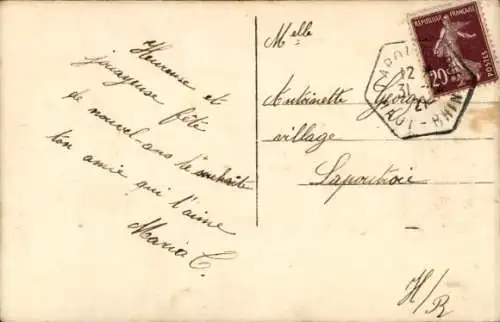 Heureuse et
joyeuse fête
de nouvel ans te souhaite
ton amie qui t'aime
Maria C.
Melle
Antoinette
village
Lapoutroie
H/R
REPUBLIQUE FRANÇAISE
20c
POSTES
12
31
HAUT-RHIN